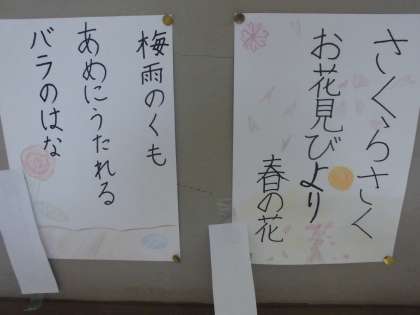 さくらさく
お花見びより
春の花
梅雨のくも
あめにうたれる
バラのはな